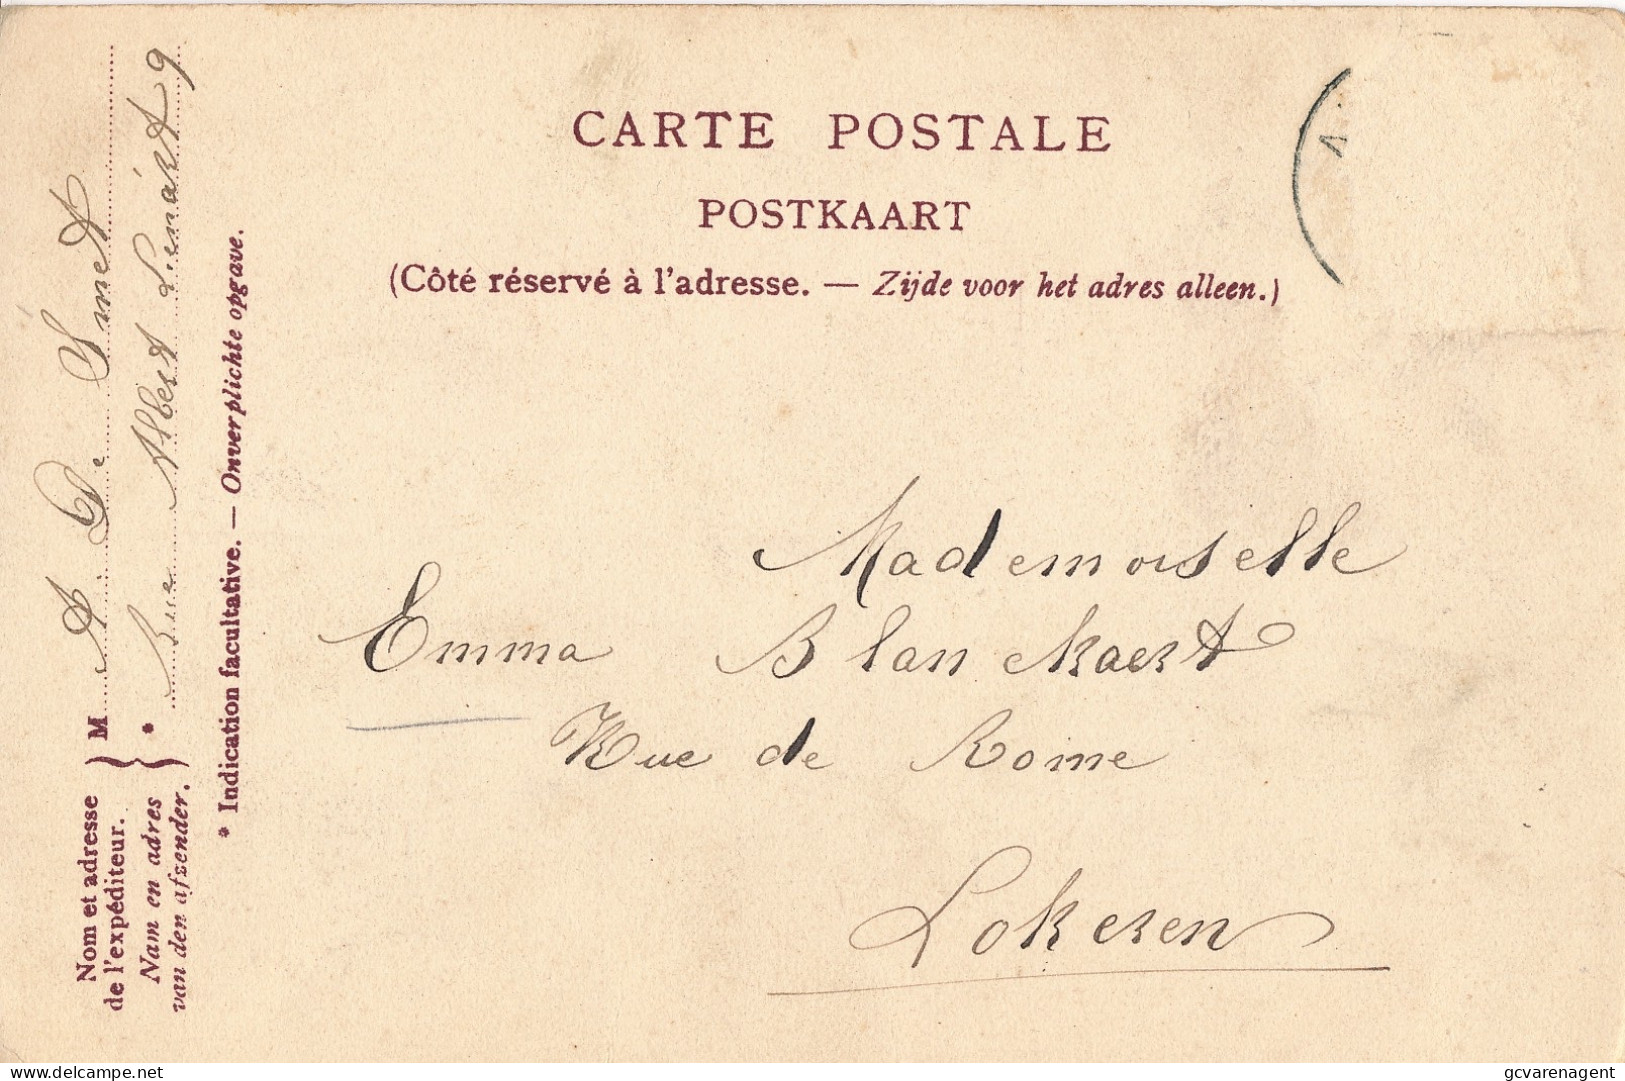 CARTE POSTALE
POSTKAART
(Côté réservé à l'adresse. — Zijde voor het adres alleen.)
Mademoiselle
Emma Blanckaert
Rue de Rome
Lokeren
Nom et adresse
de l'expéditeur.
Nam en adres
van den afzender.
M A. D. Smet
* Rue Albert Liénart 9
* Indication facultative. — Onverplichte opgave.
delcampe.net
gcvarenagent